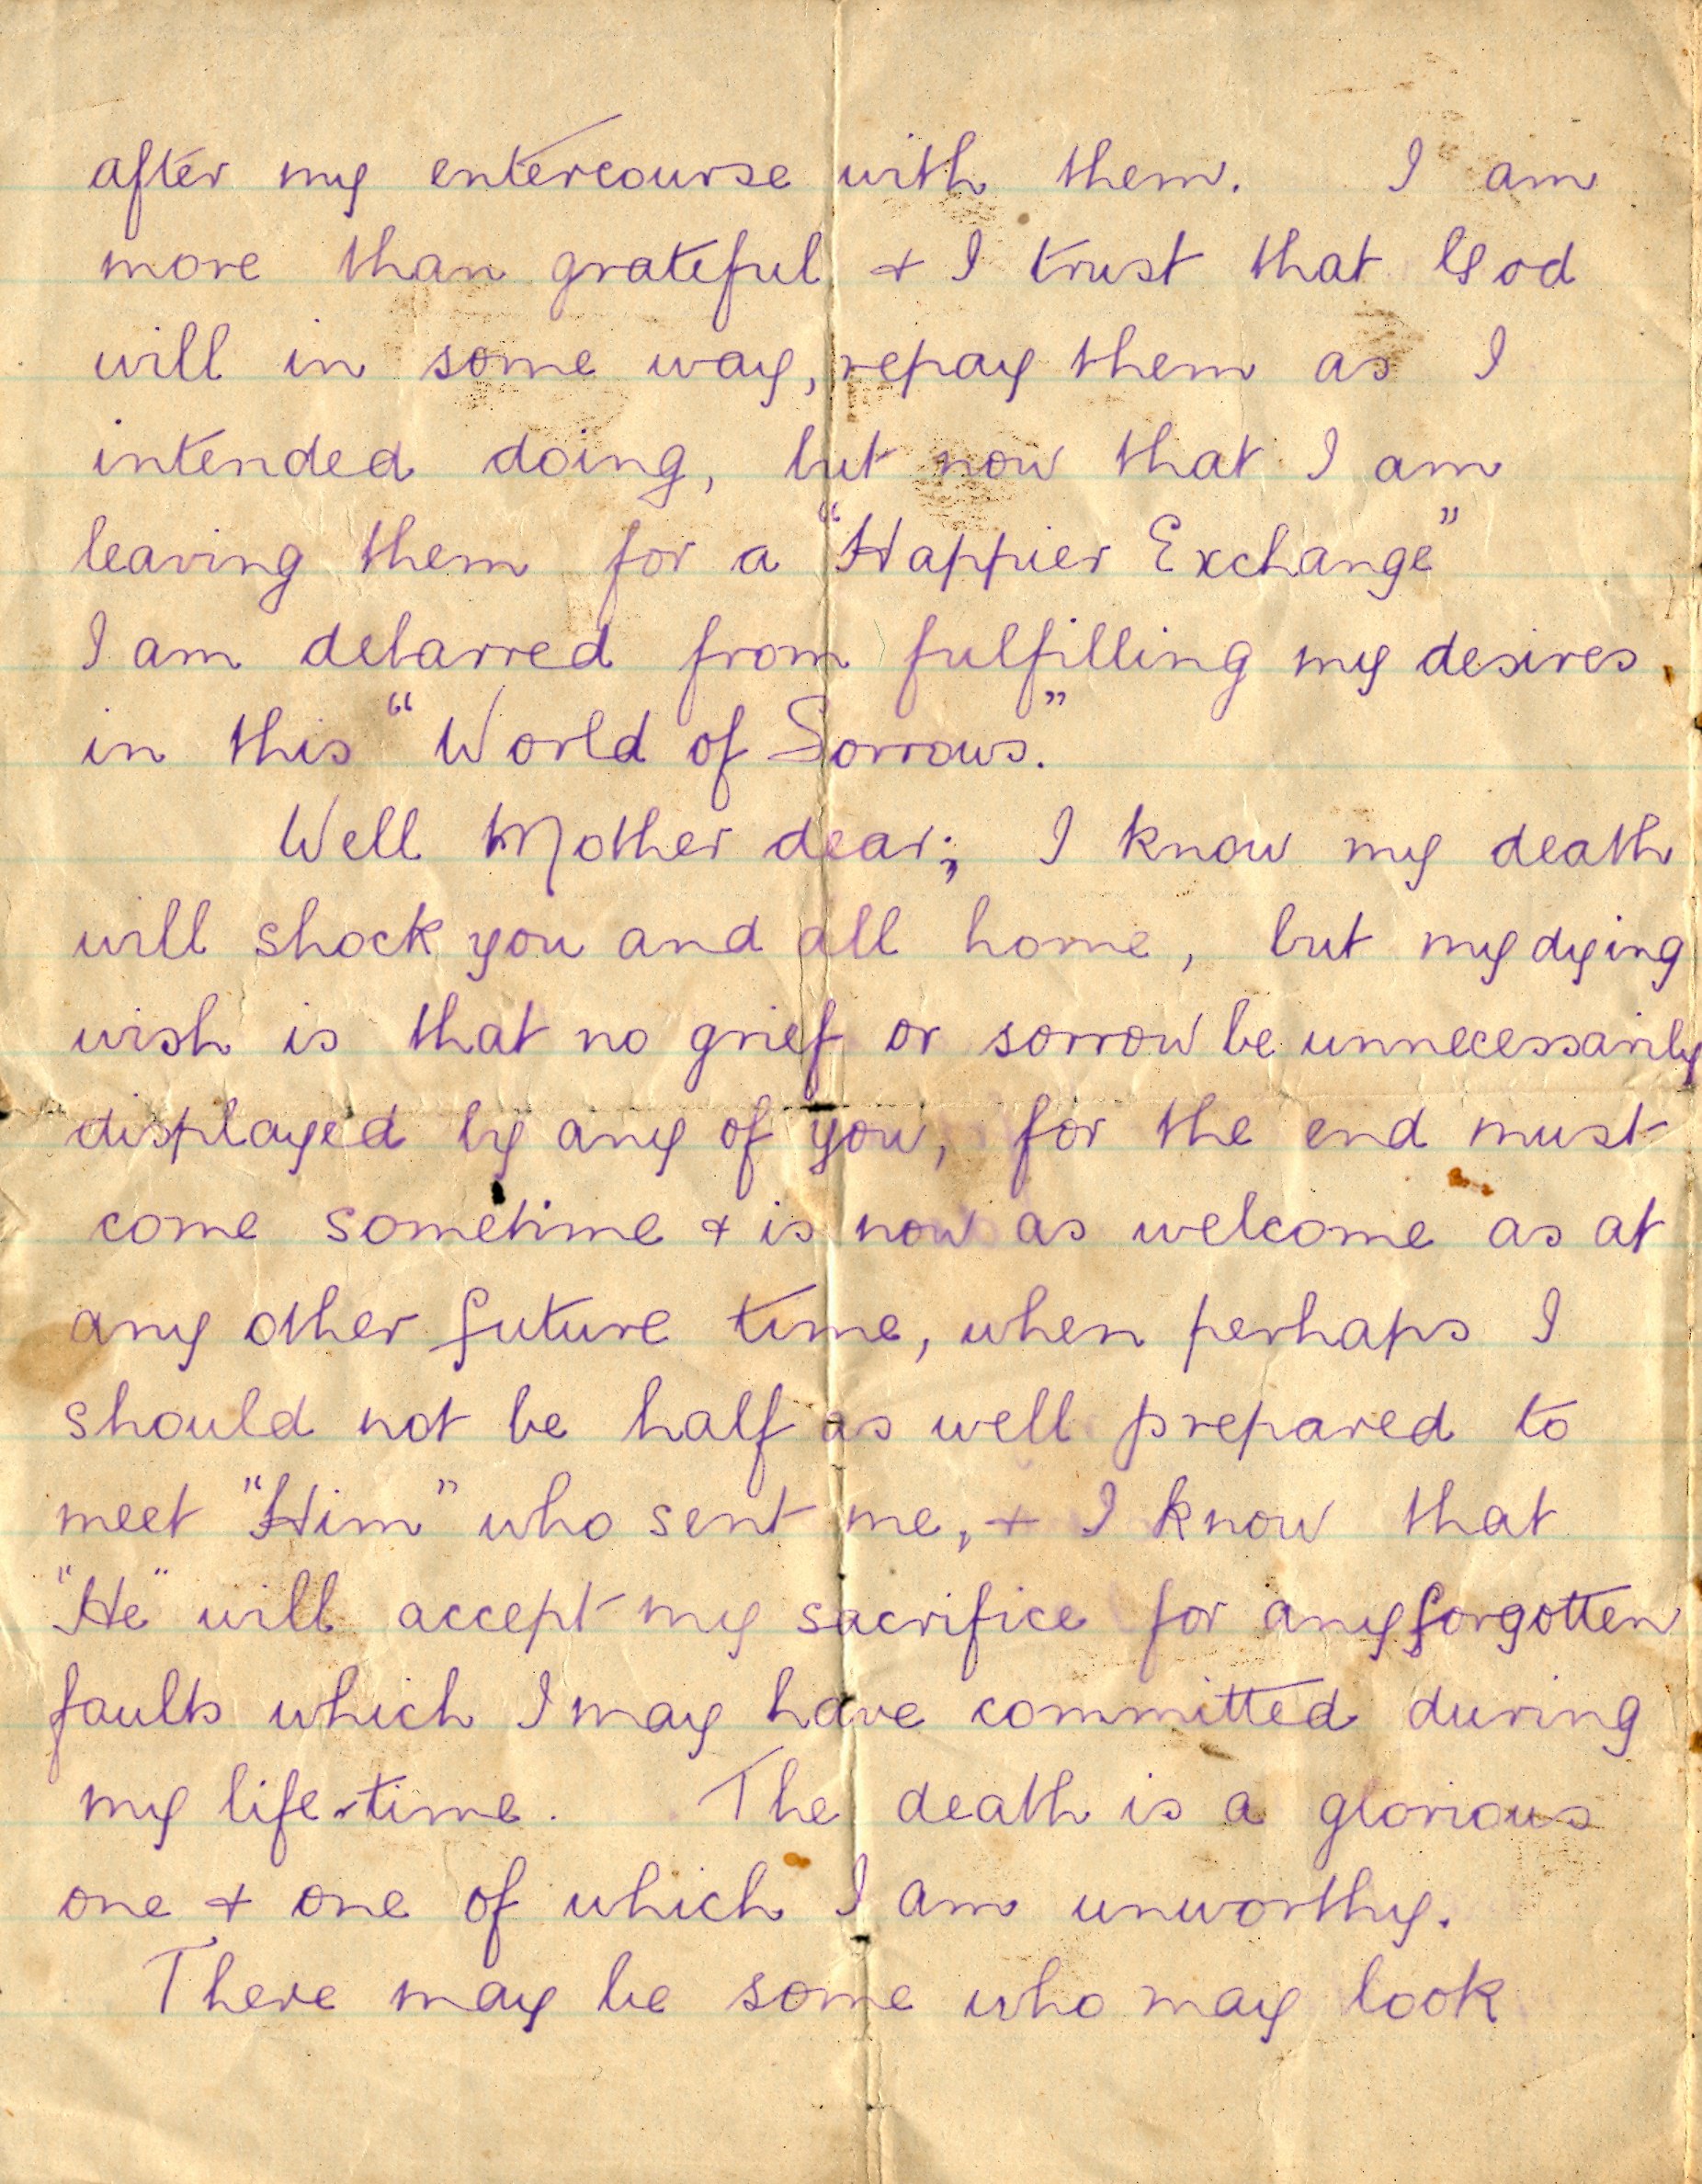 after my entercourse with them. I am
more than grateful & I trust that God
will in some way, repay them as I
intended doing, but now that I am
leaving them for a "Happier Exchange"
I am debarred from fulfilling my desires
in this "World of Sorrows."
Well Mother dear; I know my death
will shock you and all home, but my dying
wish is that no grief or sorrow be unnecessarily
displayed by any of you, for the end must
come sometime & is now as welcome as at
any other future time, when perhaps I
should not be half as well prepared to
meet "Him" who sent me, & I know that
"He" will accept my sacrifice for any forgotten
faults which I may have committed during
my life-time. The death is a glorious
one & one of which I am unworthy.
There may be some who may look